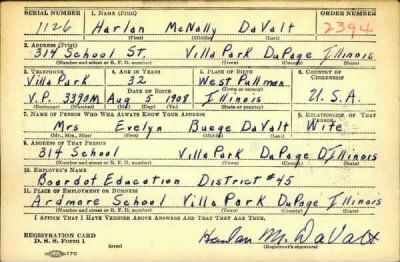 SERIAL NUMBER 1. NAME (Print) ORDER NUMBER
1126 Harlan McNally DaValt 2394
(First) (Middle) (Last)
2. ADDRESS (Print)
314 School ST. Villa Park DuPage Illinois
(Number and street or R. F. D. number) (Town) (County) (State)
3. TELEPHONE 4. AGE IN YEARS 5. PLACE OF BIRTH 6. COUNTRY OF CITIZENSHIP
Villa Park 32 West Pullman
DATE OF BIRTH (Town or county)
V.P. 3390M Aug 5 1908 Illinois U.S.A.
(Exchange) (Number) (Mo.) (Day) (Yr.) (State or country)
7. NAME OF PERSON WHO WILL ALWAYS KNOW YOUR ADDRESS 8. RELATIONSHIP OF THAT PERSON
Mrs Evelyn Buege DaValt Wife
(Mr., Mrs., Miss) (First) (Middle) (Last)
9. ADDRESS OF THAT PERSON
314 School Villa Park DuPage Illinois
(Number and street or R. F. D. number) (Town) (County) (State)
10. EMPLOYER'S NAME
Board of Education District #45
11. PLACE OF EMPLOYMENT OR BUSINESS
Ardmore School Villa Park DuPage Illinois
(Number and street or R. F. D. number) (Town) (County) (State)
I AFFIRM THAT I HAVE VERIFIED ABOVE ANSWERS AND THAT THEY ARE TRUE.
REGISTRATION CARD
D. S. S. Form 1 (over) Harlan M. DaValt
(Registrant's signature)